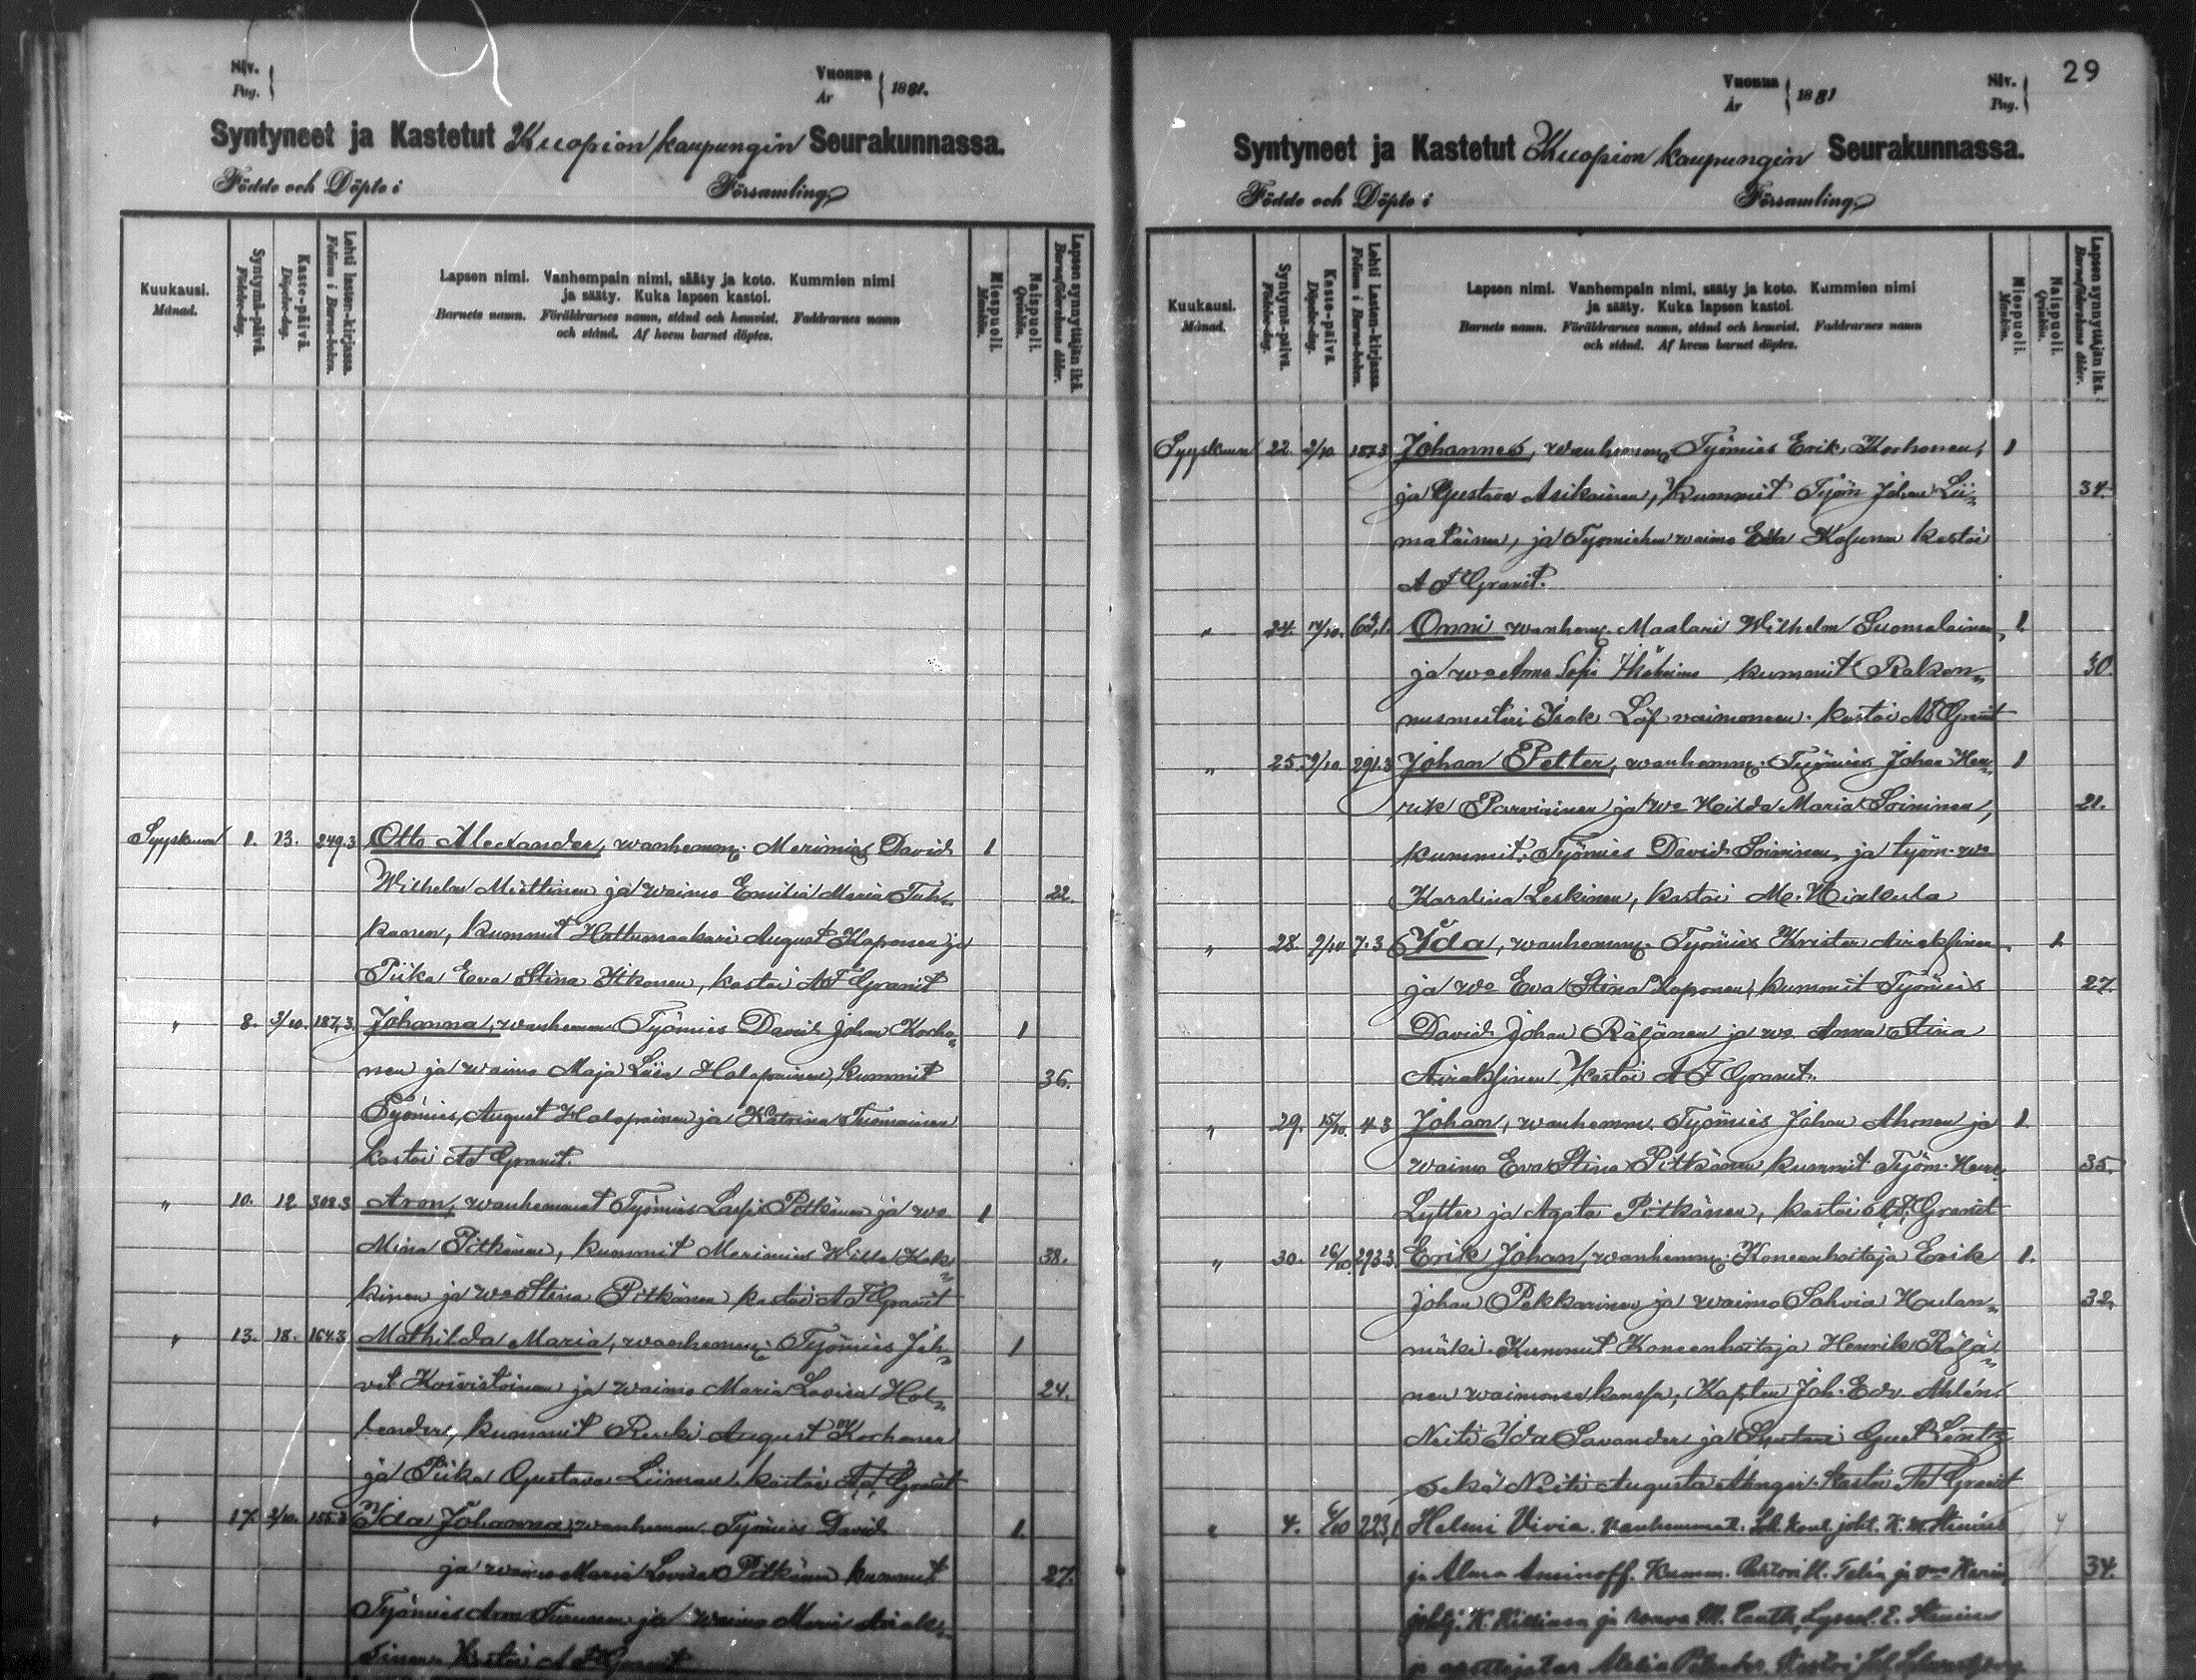 Siv.
Pag.
Vuonna
År
1881.
Syntyneet ja Kastetut Kuopion kaupungin Seurakunnassa.
Födde och Döpte i Församling
Kuukausi.
Månad.
Syntymä-päivä.
Födelse-dag.
Kaste-päivä.
Döpelse-dag.
Lehti lasten-kirjassa.
Folium i Barna-boken.
Lapsen nimi. Vanhempain nimi, sääty ja koto. Kummien nimi
ja sääty. Kuka lapsen kastoi.
Barnets namn. Föräldrarnes namn, stånd och hemvist. Faddrarnes namn
och stånd. Af hvem barnet döptes.
Miespuoli.
Mankön.
Naispuoli.
Qvinkön.
Lapsen synnyttäjän ikä.
Barnaföderskans ålder.
Syyskuun 1. 13. 249.3 Otto Alexander, wanhemm: Merimies David 1
Wilhelm Miettinen ja waimo Emilia Maria Tuh- 22.
kanen, kummit Hattumaakari August Kaponen ja
Piika Eva Stina Itkonen, kastoi A F Granit
" 8. 3/10. 187,3. Johanna, wanhemm Työmies David Johan Korho- 1
nen ja waimo Maja Liisa Halapainen, kummit 36.
Työmies August Halapainen ja Katrina Tuomainen
kastoi A F Granit.
" 10. 12 308.3 Aron, wanhemmat Työmies Lassi Pitkänen ja wo 1
Mina Pitkänen, kummit Merimies Wille Kok- 38.
kinen ja wo Stina Pitkänen kastoi A F Granit
" 13. 18. 164.3 Mathilda Maria, wanhemm: Työmies Joh- 1
Koivistoinen ja waimo Maria Lovisa Hol- 24.
lender, kummit Renki August Korhonen
ja Piika Gustava Liiman. kastoi A F Granit
" 17. 2/10. 155.3 Ida Johanna, wanhemm Työmies David 1.
ja waimo Maria Lovisa Pitkänen kummit 27.
Työmies Aron Turunen ja waimo Maria Airak-
sinen. Kastoi A F Granit
29
Vuonna
År
1881
Siv.
Pag.
Syntyneet ja Kastetut Kuopion kaupungin Seurakunnassa.
Födde och Döpte i Församling
Kuukausi.
Månad.
Syntymä-päivä.
Födelse-dag.
Kaste-päivä.
Döpelse-dag.
Lehti Lasten-kirjassa.
Folium i Barna-boken.
Lapsen nimi. Vanhempain nimi, sääty ja koto. Kummien nimi
ja sääty. Kuka lapsen kastoi.
Barnets namn. Föräldrarnes namn, stånd och hemvist. Faddrarnes namn
och stånd. Af hvem barnet döptes.
Miespuoli.
Mankön.
Naispuoli.
Qvinkön.
Lapsen synnyttäjän ikä.
Barnaföderskans ålder.
Syyskuun 22. 2/10 187.3 Johannes, wanhemm, Työmies Erik Korhonen, 1
ja Gustava Asikainen, Kummit Työm Johan Lii- 34.
matainen, ja Työmiehen waimo Eva kastoi
A F Granit.
" 24. 14/10. Onni wanhem. Maalari Wilhelm Suomalainen, 1.
ja wo Anna Sofia kummit Raken- 30.
nusmestari Isak Löf vaimoneen. kastoi A F Granit
" 25. 9/10 291.3 Johan Petter, wanhemm: Työmies Johan Hen- 1
rik Parviainen ja wo Hilda Maria Soininen, 21.
kummit, Työmies David Soininen, ja työm. wo
Karolina Leskinen, kastoi
" 28. 9/10 7.3 Ida, wanhemm. Työmies Krister Airaksinen 1.
ja wo Eva Stina Kaponen, kummit Työmies 27.
David Johan Räisänen ja wo Anna Stina
Airaksinen, Kastoi A F Granit.
" 29. 15/10. 4.3 Johan, wanhemm. Työmies Johan Ahonen ja 1.
waimo Eva Stina Pitkänen, kummit Työm. Henr. 35.
Lytter ja Agata Pitkänen, kastoi A F Granit
" 30. 16/10. 292.3. Erik Johan, wanhemm: Koneenhoitaja Erik 1.
Johan Pekkarinen ja waimo Hulan- 32.
mäki. Kummit Koneenhoitaja Henrik Räisä-
nen waimonsa kanssa, Kapten Joh. Edv. Ahlén.
Neiti Ida Savander ja Gust
sekä Neiti Augusta kastoi A F Granit
" 4. 6/10 223,1 Helmi Vivia. Vanhemmat. joht. K. M. Stenius
ja Alma Aminoff. Kumm. 34.
johtj. K. Killinen ja rouva M. Canth, Lyseol. E. Stenius